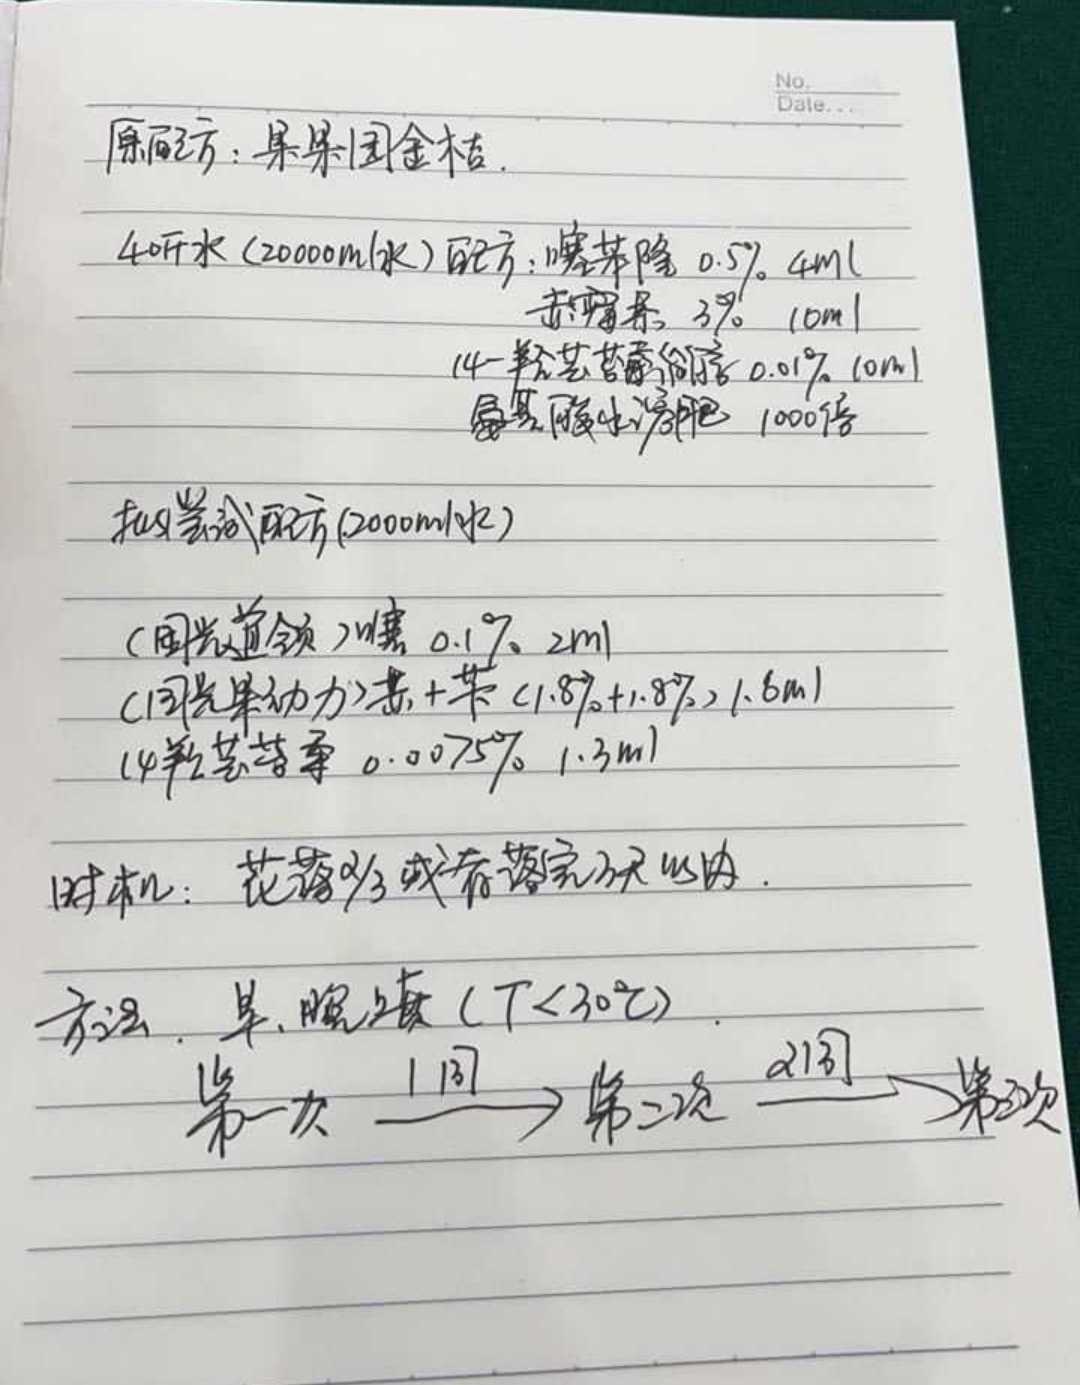 No.
Date...
原配方：果果国金桔.
40斤水（20000ml水）配方：噻苯隆 0.5% 4ml
赤霉素 3% 10ml
14-羟芸苔素甾醇 0.01% 10ml
氨基酸水溶肥 1000倍
拟尝试配方（2000ml水）
（国光道领）噻 0.1% 2ml
（国光果动力）赤+苄（1.8%+1.8%）1.6ml
14羟芸苔素 0.0075% 1.3ml
时机：花落2/3或者落完3天以内.
方法. 早、晚喷（T<30℃）.
第一次 1周 → 第二次 2周 → 第三次